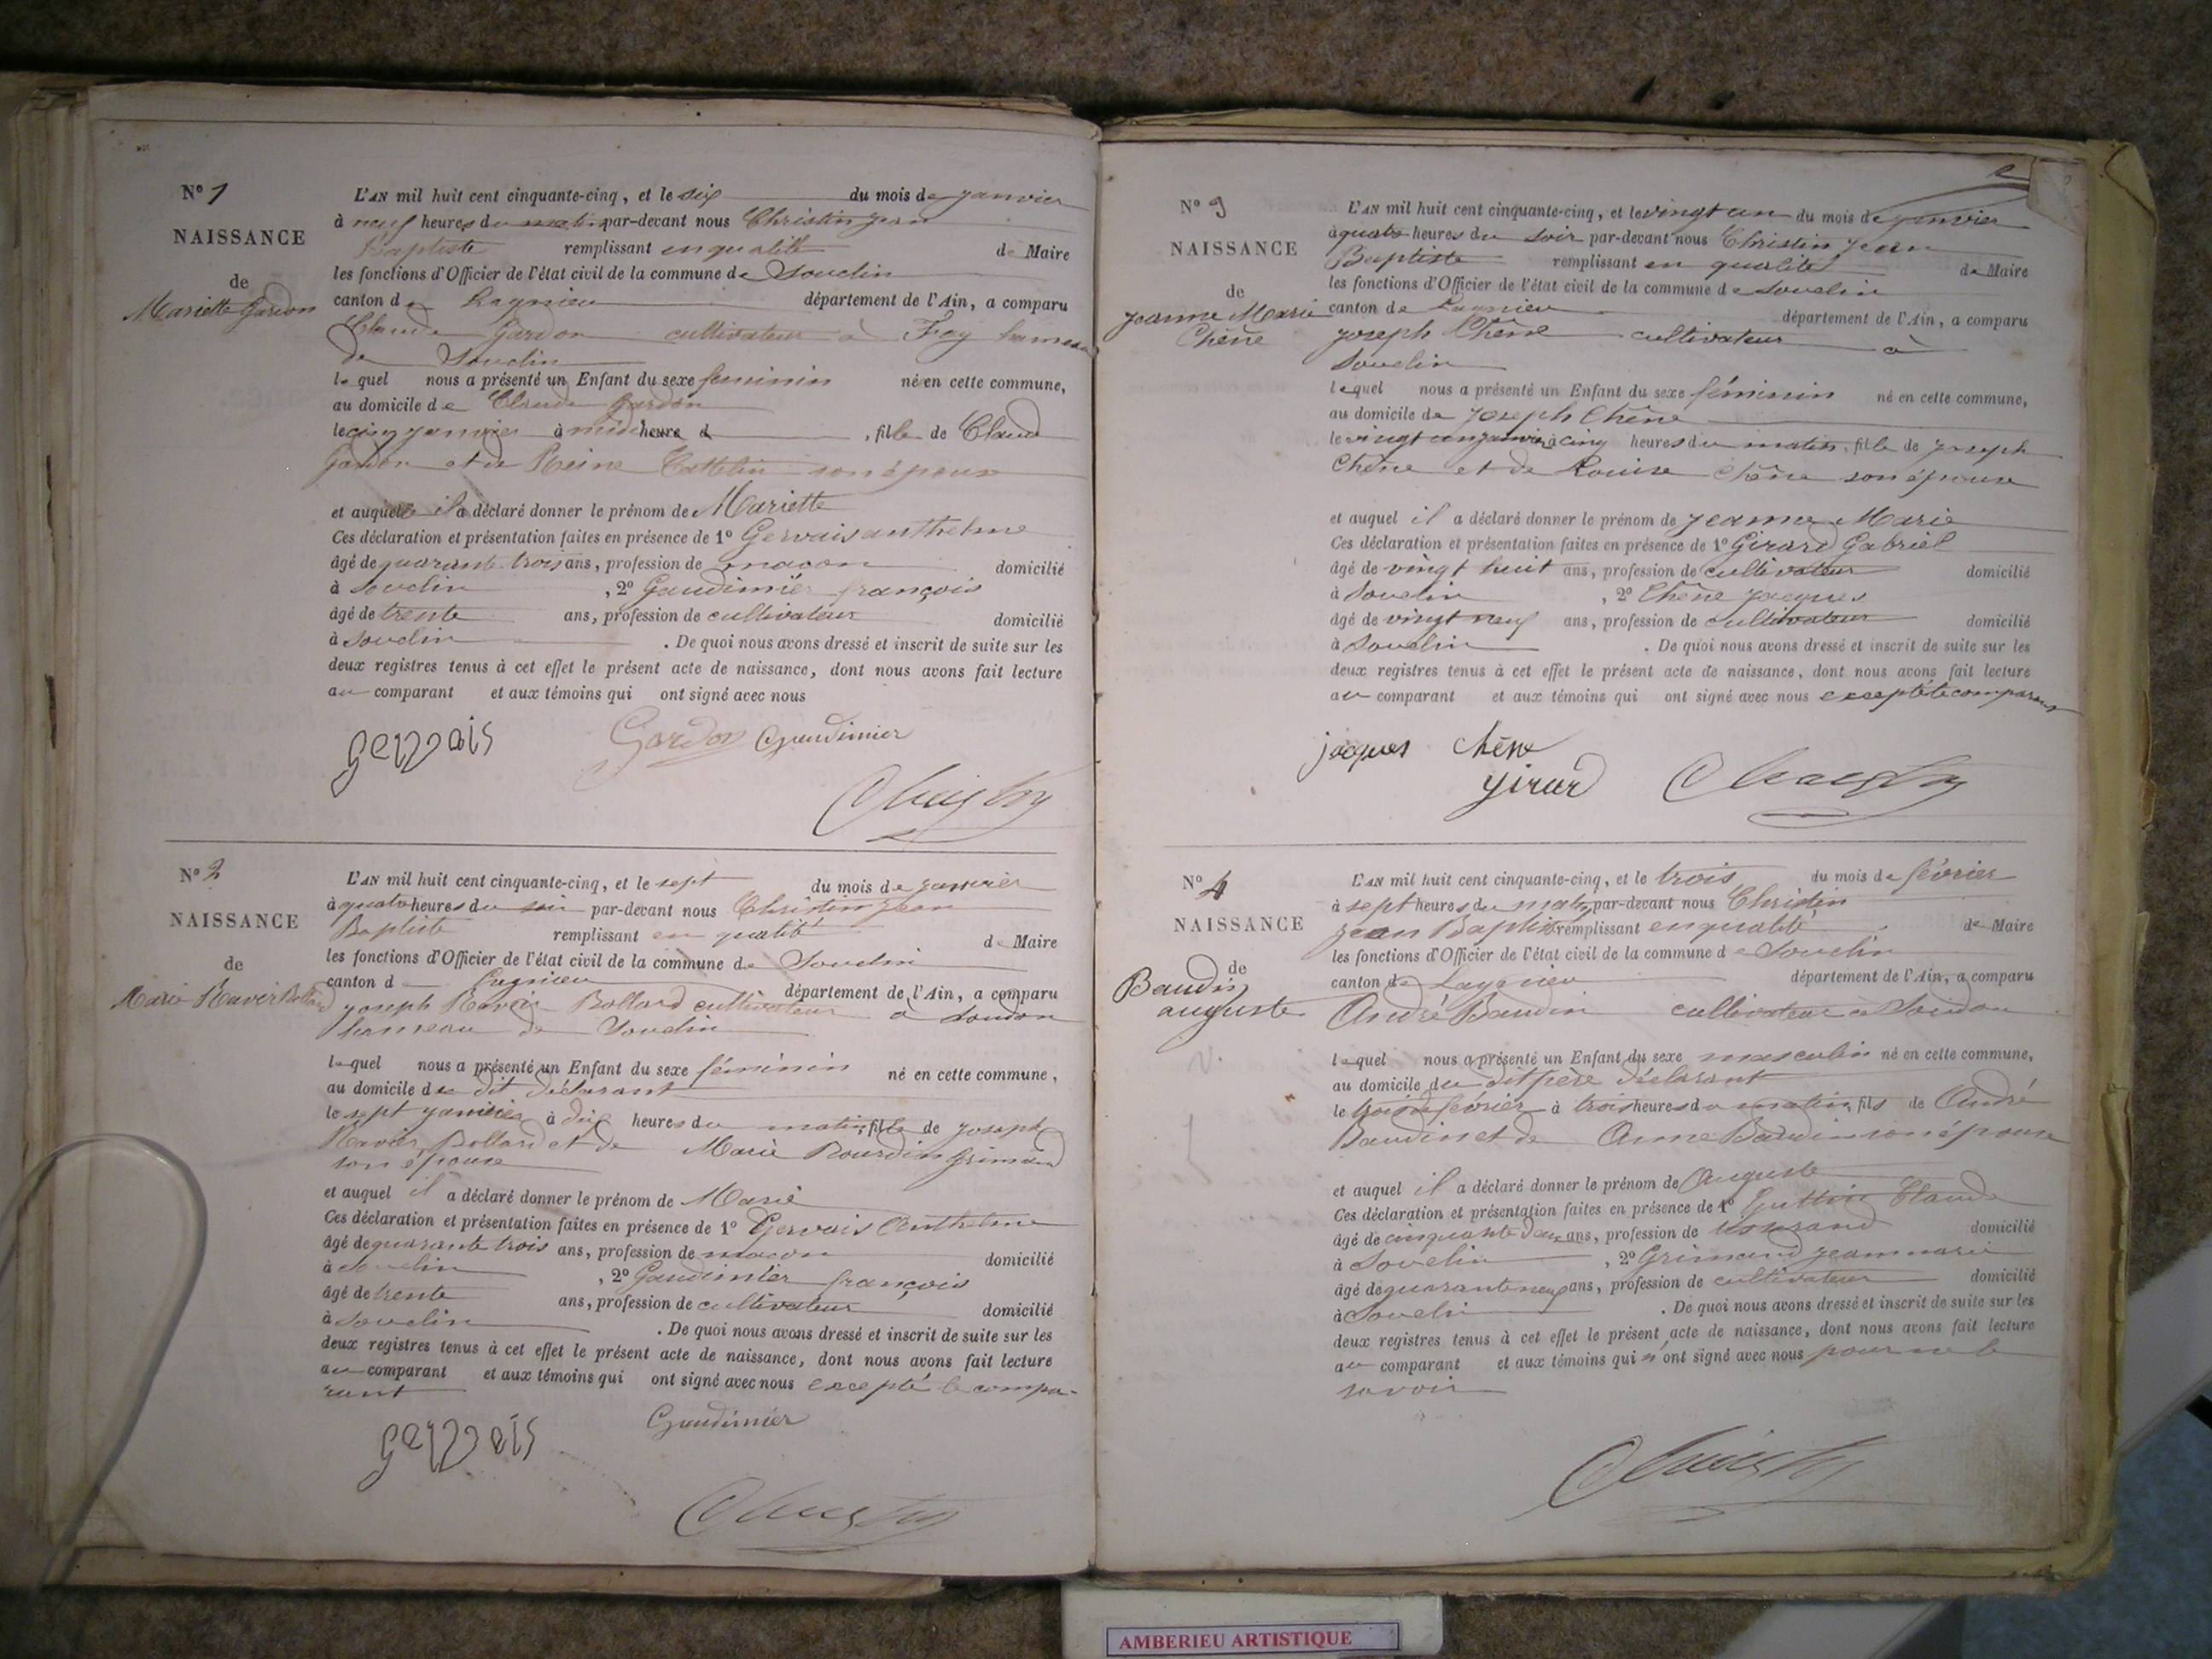 Nº 1
NAISSANCE
de
Mariette Gardon
L'AN mil huit cent cinquante-cinq, et le six du mois de janvier
à neuf heures du matin par-devant nous Christin jean
Baptiste remplissant en qualité de Maire
les fonctions d'Officier de l'état civil de la commune de Souclin
canton de Lagnieu département de l'Ain, a comparu
Claude Gardon cultivateur à Fay hameau
de Souclin
lequel nous a présenté un Enfant du sexe féminin né en cette commune,
au domicile de Claude Gardon
le cinq janvier à midi heure d , fille de Claude
Gardon et de Reine son épouse
et auquel il a déclaré donner le prénom de Mariette
Ces déclaration et présentation faites en présence de 1º Gervais anthelme
âgé de quarante trois ans, profession de macon domicilié
à Souclin , 2º Gaudimier françois
âgé de trente ans, profession de cultivateur domicilié
à Souclin . De quoi nous avons dressé et inscrit de suite sur les
deux registres tenus à cet effet le présent acte de naissance, dont nous avons fait lecture
au comparant et aux témoins qui ont signé avec nous
gervais Gardon Gaudimier
Christin
Nº 2
NAISSANCE
de
Marie Ravier Bollard
L'AN mil huit cent cinquante-cinq, et le sept du mois de janvier
à quatre heures du soir par-devant nous Christin jean
Baptiste remplissant en qualité de Maire
les fonctions d'Officier de l'état civil de la commune de Souclin
canton d Lagnieu département de l'Ain, a comparu
joseph Ravier Bollard cultivateur à Soudon
hameau de Souclin
lequel nous a présenté un Enfant du sexe féminin né en cette commune,
au domicile du dit déclarant
le sept janvier à dix heures du matin, fille de joseph
Ravier Bollard et de Marie Bourdin Grimand
son épouse
et auquel il a déclaré donner le prénom de Marie
Ces déclaration et présentation faites en présence de 1º Gervais Anthelme
âgé de quarante trois ans, profession de macon domicilié
à Souclin , 2º Gaudimier françois
âgé de trente ans, profession de cultivateur domicilié
à Souclin . De quoi nous avons dressé et inscrit de suite sur les
deux registres tenus à cet effet le présent acte de naissance, dont nous avons fait lecture
au comparant et aux témoins qui ont signé avec nous excepté le compa-
rant
gervais Gaudimier
Christin
2
Nº 3
NAISSANCE
de
jeanne Marie
Chêne
L'AN mil huit cent cinquante-cinq, et le vingt un du mois de janvier
à quatre heures du soir par-devant nous Christin jean
Baptiste remplissant en qualité de Maire
les fonctions d'Officier de l'état civil de la commune de Souclin
canton de Lagnieu département de l'Ain, a comparu
joseph Chêne cultivateur à
Souclin
lequel nous a présenté un Enfant du sexe féminin né en cette commune,
au domicile de joseph Chêne
le vingt un janvier à cinq heures du matin, fille de joseph
Chêne et de Louise Chêne son épouse
et auquel il a déclaré donner le prénom de jeanne Marie
Ces déclaration et présentation faites en présence de 1º Girard Gabriel
âgé de vingt huit ans, profession de cultivateur domicilié
à Souclin , 2º Chêne jacques
âgé de vingt neuf ans, profession de cultivateur domicilié
à Souclin . De quoi nous avons dressé et inscrit de suite sur les
deux registres tenus à cet effet le présent acte de naissance, dont nous avons fait lecture
au comparant et aux témoins qui ont signé avec nous excepté le comparant
jacques chêne
girard Christin
Nº 4
NAISSANCE
de
Baudin
auguste
L'AN mil huit cent cinquante-cinq, et le trois du mois de février
à sept heures du matin par-devant nous Christin
jean Baptiste remplissant en qualité de Maire
les fonctions d'Officier de l'état civil de la commune de Souclin
canton de Lagnieu département de l'Ain, a comparu
André Baudin cultivateur à Soudon
lequel nous a présenté un Enfant du sexe masculin né en cette commune,
au domicile du dit père déclarant
le trois de février à trois heures du matin, fils de André
Baudin et de Anne Baudin son épouse
et auquel il a déclaré donner le prénom de Auguste
Ces déclaration et présentation faites en présence de 1º Guttin Claude
âgé de cinquante deux ans, profession de tisserand domicilié
à Souclin , 2º Grimand jean marie
âgé de quarante neuf ans, profession de cultivateur domicilié
à Souclin . De quoi nous avons dressé et inscrit de suite sur les
deux registres tenus à cet effet le présent acte de naissance, dont nous avons fait lecture
au comparant et aux témoins qui n'ont signé avec nous pour ne le
savoir
Christin
AMBERIEU ARTISTIQUE